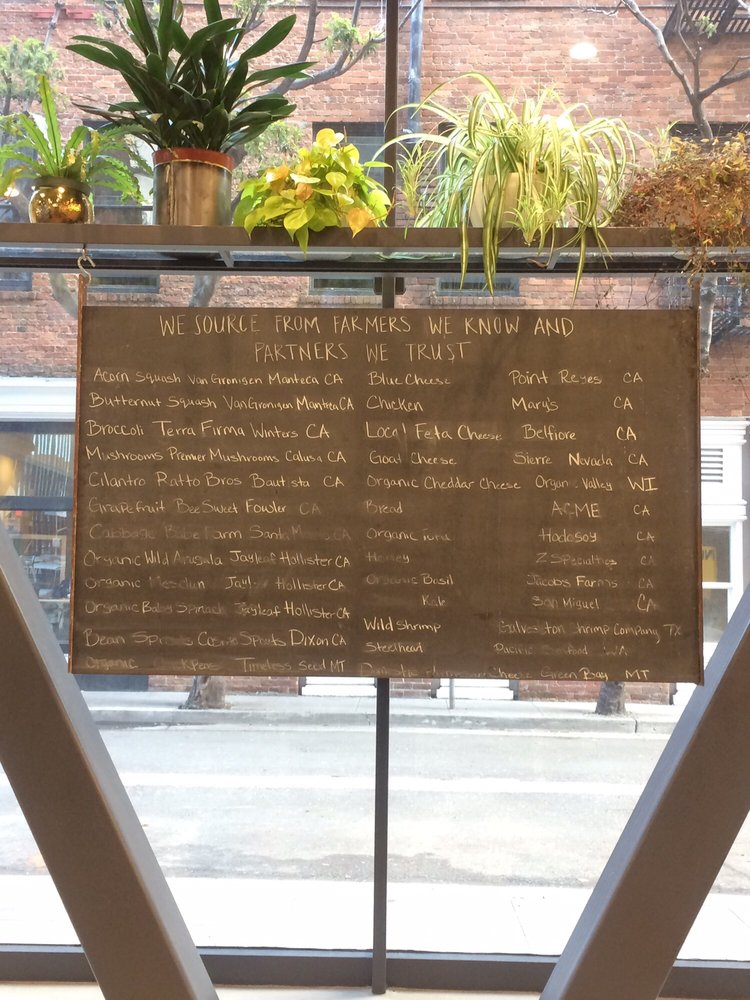 WE SOURCE FROM FARMERS WE KNOW AND
PARTNERS WE TRUST
Acorn Squash Van Gronigen Manteca CA
Butternut Squash Van Gronigen Manteca CA
Broccoli Terra Firma Winters CA
Mushrooms Premier Mushrooms Calusa CA
Cilantro Ratto Bros Bautista CA
Grapefruit Bee Sweet Fowler CA
Cabbage Babe Farm Santa CA
Organic Wild Arugula Jayleaf Hollister CA
Organic Mesclun Jayleaf Hollister CA
Organic Baby Spinach Jayleaf Hollister CA
Bean Sprouts Sprouts Dixon CA
Organic Chickpeas Timeless Seed MT
Blue Cheese Point Reyes CA
Chicken Mary's CA
Local Feta Cheese Belfiore CA
Goat Cheese Sierre Nevada CA
Organic Cheddar Cheese Organ Valley WI
Bread ACME CA
Organic Tofu Hodosoy CA
Honey Z Specialties CA
Organic Basil Jacobs Farms CA
Kale San Miguel CA
Wild Shrimp Galveston Shrimp Company TX
Steelhead Pacific Seafood WA
Cheese Green Bay MT